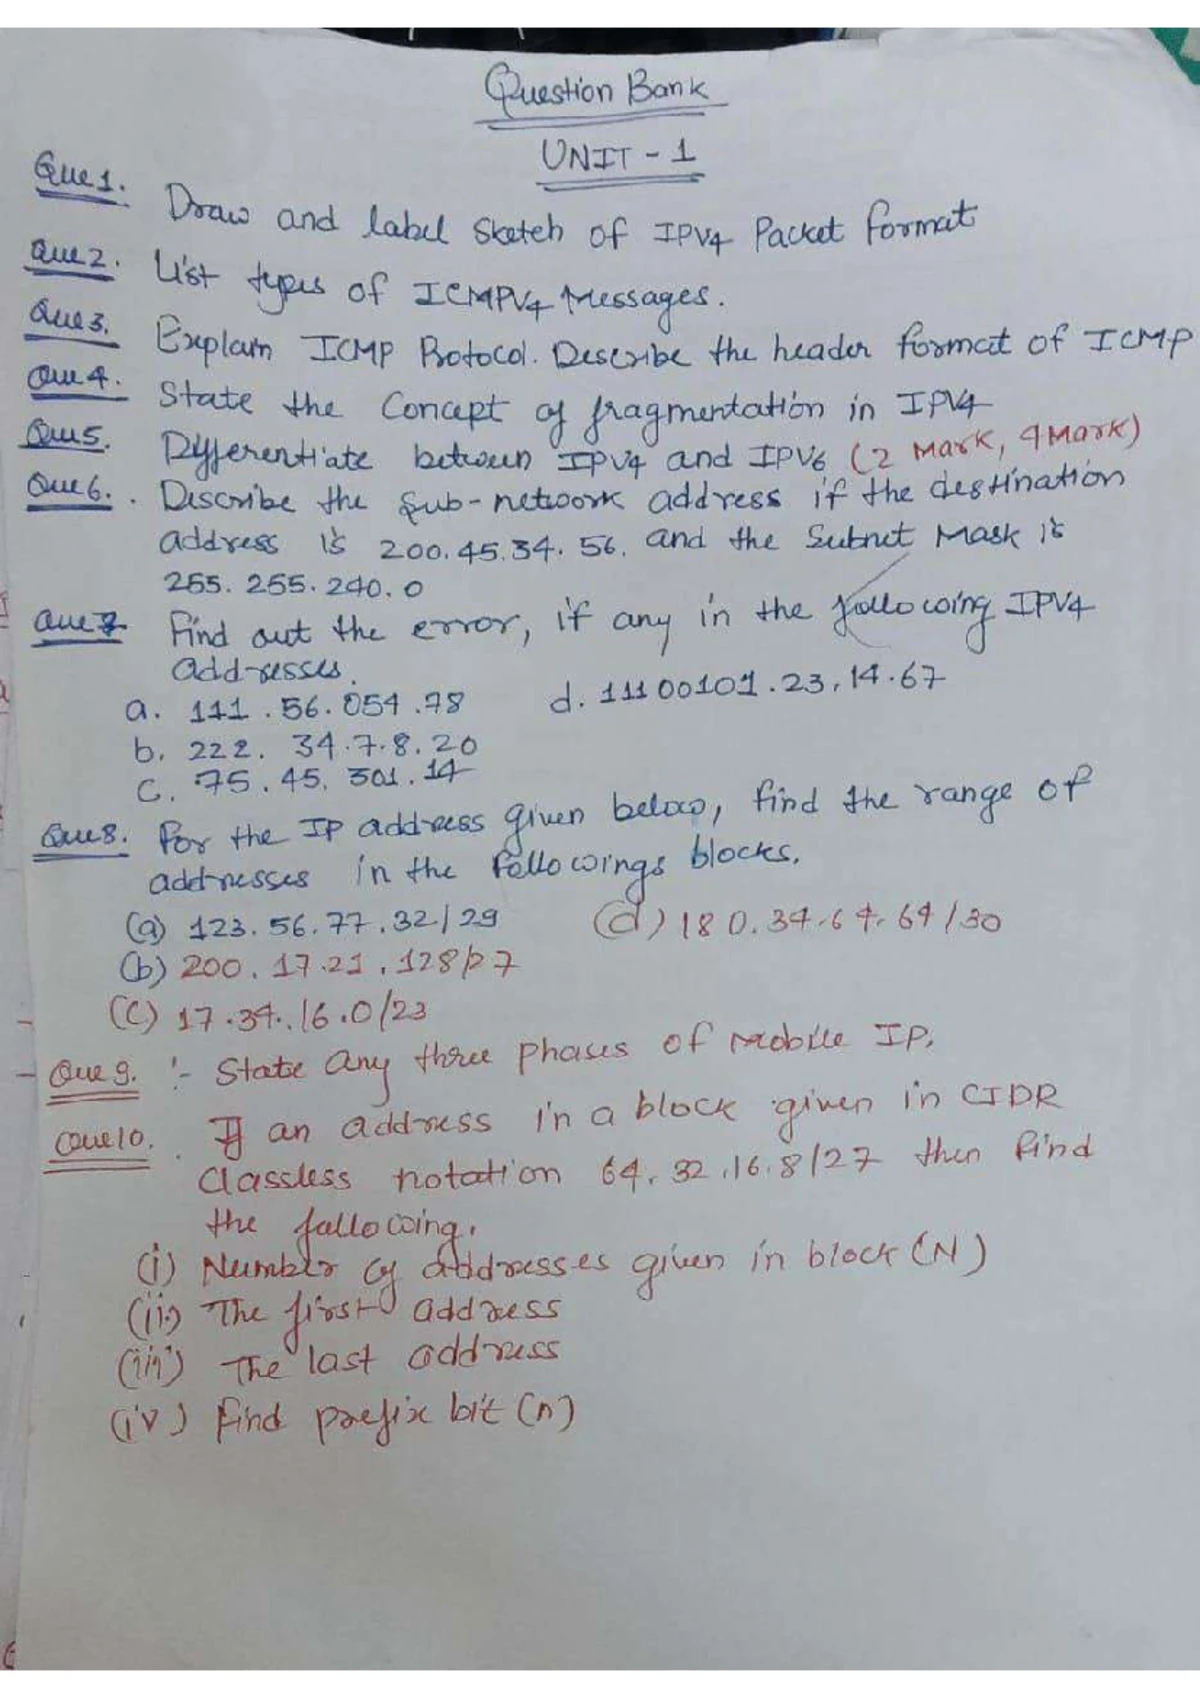 Question Bank
UNIT - 1
Que 1. Draw and label Sketch of IPV4 Packet format
Que 2. List types of ICMPV4 Messages.
Que 3. Explain ICMP Protocol. Describe the header format of ICMP
Que 4. State the Concept of fragmentation in IPV4
Que 5. Differentiate between IPV4 and IPV6 (2 Mark, 4 Mark)
Que 6. Describe the Sub-network address if the destination
address is 200.45.34.56. and the Subnet Mask is
255.255.240.0
Que 7 Find out the error, if any in the following IPV4
addresses.
a. 111.56.054.78 d. 11100101.23.14.67
b. 222.34.7.8.20
c. 75.45.301.14
Que 8. For the IP address given below, find the range of
addresses in the followings blocks.
(a) 123.56.77.32/29 (d) 180.34.64.64/30
(b) 200.17.21.128/27
(c) 17.34.16.0/23
Que 9. :- State any three phases of mobile IP.
Que 10. If an address in a block given in CIDR
Classless notation 64.32.16.8/27 then find
the following.
(i) Number of addresses given in block (N)
(ii) The first address
(iii) The last address
(iv) Find prefix bit (n)